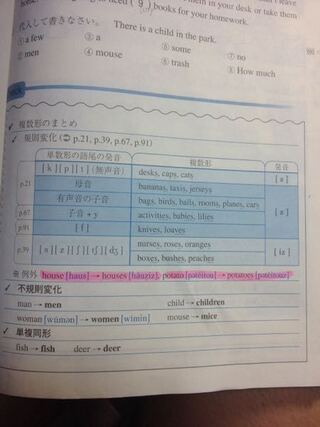 books for your homework.
代入して書きなさい。 There is a child in the park.
① a few ③ a ⑤ some ⑦ no
② men ④ mouse ⑥ trash ⑧ How much
✓ 複数形のまとめ
✓ 規則変化 (⊃ p.21, p.39, p.67, p.91)
単数形の語尾の発音 複数形 発音
p.21 [k] [p] [t] (無声音) desks, caps, cats [s]
母音 bananas, taxis, jerseys
有声音の子音 bags, birds, bails, rooms, planes, cars [z]
p.67 子音+y activities, babies, lilies
p.91 [f] knives, loaves
p.39 [s] [z] [ʃ] [tʃ] [dʒ] nurses, roses, oranges [iz]
boxes, bushes, peaches
※ 例外 house [haus] → houses [háuziz], potato [pətéitou] → potatoes [pətéitouz]
✓ 不規則変化
man → men child → children
woman [wúmən] → women [wímin] mouse → mice
✓ 単複同形
fish → fish deer → deer